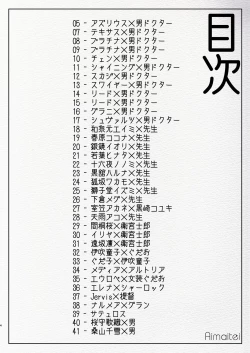 目次
05 - アズリウス×男ドクター
07 - テキサス×男ドクター
08 - プラチナ×男ドクター
09 - プラチナ×男ドクター
10 - チェン×男ドクター
11 - シャイニング×男ドクター
12 - スカジ×男ドクター
13 - スワイヤー×男ドクター
14 - リード×男ドクター
15 - リード×男ドクター
16 - グラニ×男ドクター
17 - シュヴァルツ×男ドクター
18 - 和泉元エイミ×先生
19 - 春原ココナ×先生
20 - 銀鏡イオリ×先生
21 - 若葉ヒナタ×先生
22 - 十六夜ノノミ×先生
23 - 黒舘ハルナ×先生
24 - 狐坂ワカモ×先生
25 - 獅子堂イズミ×先生
26 - 下倉メグ×先生
27 - 室笠アカネ×黒崎コユキ
28 - 天雨アコ×先生
29 - 間桐桜×衛宮士郎
30 - イリヤ×衛宮士郎
31 - 遠坂凛×衛宮士郎
32 - 伊吹童子×ぐだお
33 - ぐだ子×伊吹童子
34 - メディア×アルトリア
35 - エウロペ×女装ぐだお
36 - エレナ×シャーロック
37 - Jervis×提督
38 - ナルメア×グラン
39 - サテュロス
40 - 桜守歌織×男
41 - 桑山千雪×男
Aimaitei